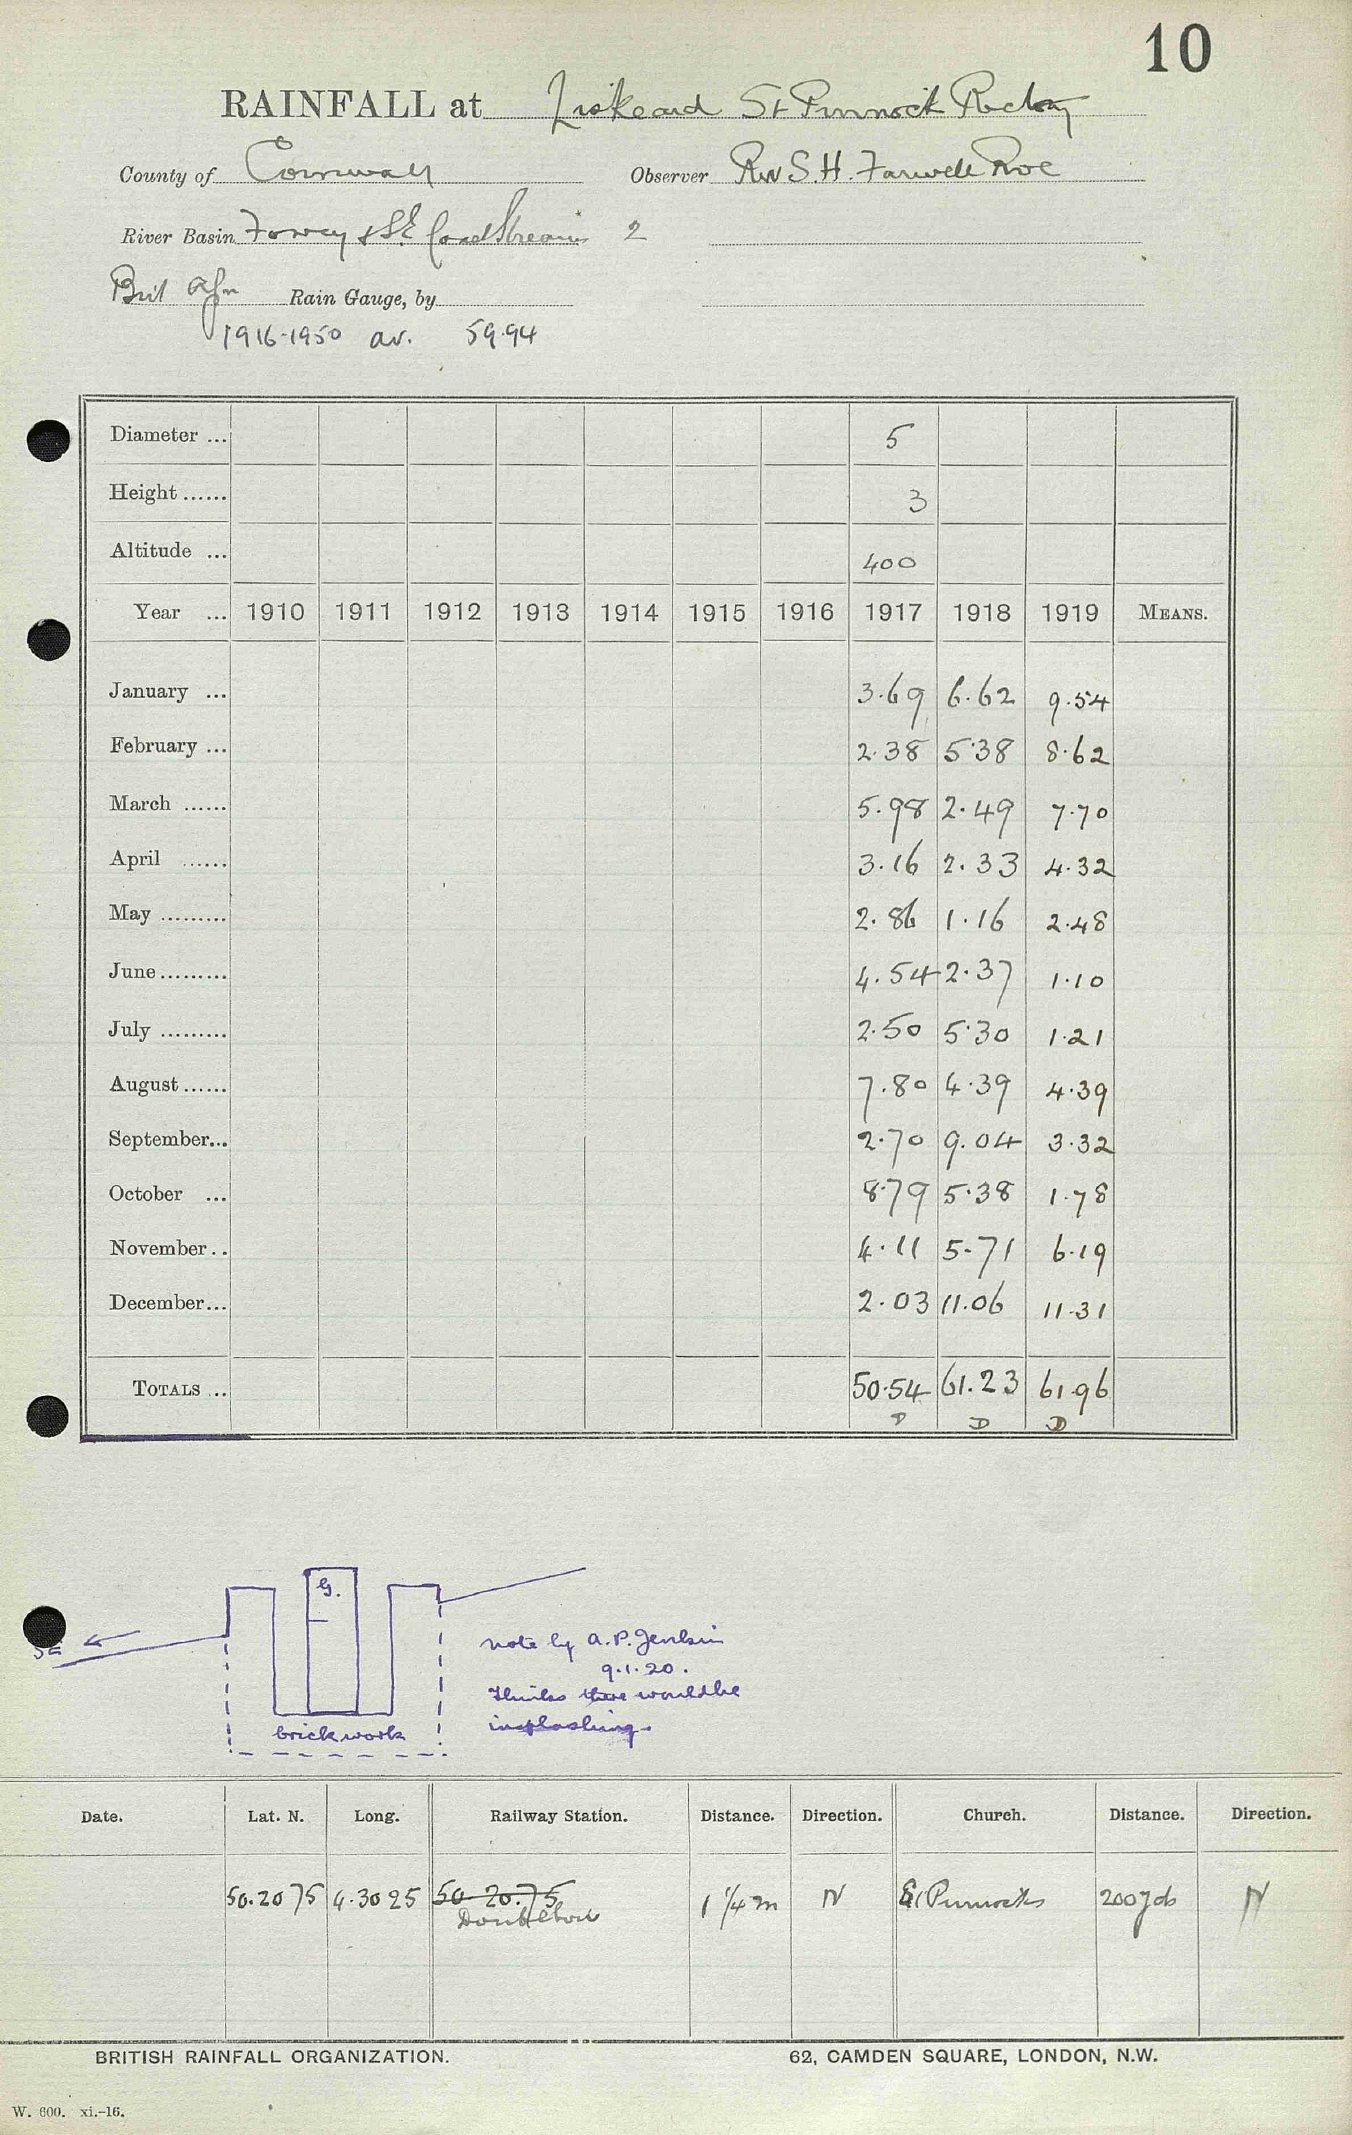 10
RAINFALL at Liskeard St Pinnock Rectory
County of Cornwall Observer Rev S.H. Farwell Roe
River Basin Fowey & S.E. Coast Streams 2
Brit Rain Gauge, by
1916-1950 av. 59.94
Diameter ... 5
Height ...... 3
Altitude ... 400
Year ... 1910 1911 1912 1913 1914 1915 1916 1917 1918 1919 MEANS.
January ... 3.69 6.62 9.54
February ... 2.38 5.38 8.62
March ...... 5.98 2.49 7.70
April ...... 3.16 2.33 4.32
May ......... 2.86 1.16 2.48
June ......... 4.54 2.37 1.10
July ......... 2.50 5.30 1.21
August ...... 7.80 4.39 4.39
September... 2.70 9.04 3.32
October ... 8.79 5.38 1.78
November .. 4.11 5.71 6.19
December... 2.03 11.06 11.31
TOTALS ... 50.54 61.23 61.96
D D D
G.
SE
brickwork
note by A.P. Jenkin
9.1.20.
thinks there would be
insplashing
Date. Lat. N. Long. Railway Station. Distance. Direction. Church. Distance. Direction.
50.20 75 4.30 25 50 20.75 1 1/4 m N St Pinnocks 200 yds N
Doublebois
BRITISH RAINFALL ORGANIZATION. 62, CAMDEN SQUARE, LONDON, N.W.
W. 600. xi.-16.